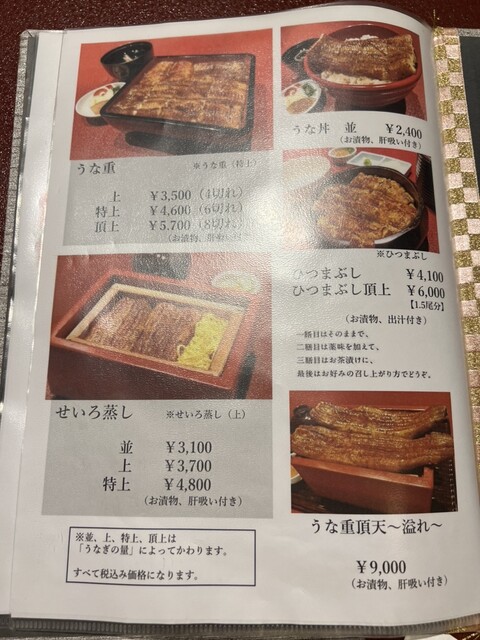 うな重 ※うな重（特上）
上 ￥3,500（4切れ）
特上 ￥4,600（6切れ）
頂上 ￥5,700（8切れ）
（お漬物、肝吸い付き）
せいろ蒸し ※せいろ蒸し（上）
並 ￥3,100
上 ￥3,700
特上 ￥4,800
（お漬物、肝吸い付き）
※並、上、特上、頂上は
「うなぎの量」によってかわります。
すべて税込み価格になります。
うな丼 並 ￥2,400
（お漬物、肝吸い付き）
※ひつまぶし
ひつまぶし ￥4,100
ひつまぶし頂上 ￥6,000
【1.5尾分】
（お漬物、出汁付き）
一膳目はそのままで、
二膳目は薬味を加えて、
三膳目はお茶漬けに、
最後はお好みの召し上がり方でどうぞ。
うな重頂天〜溢れ〜
￥9,000
（お漬物、肝吸い付き）